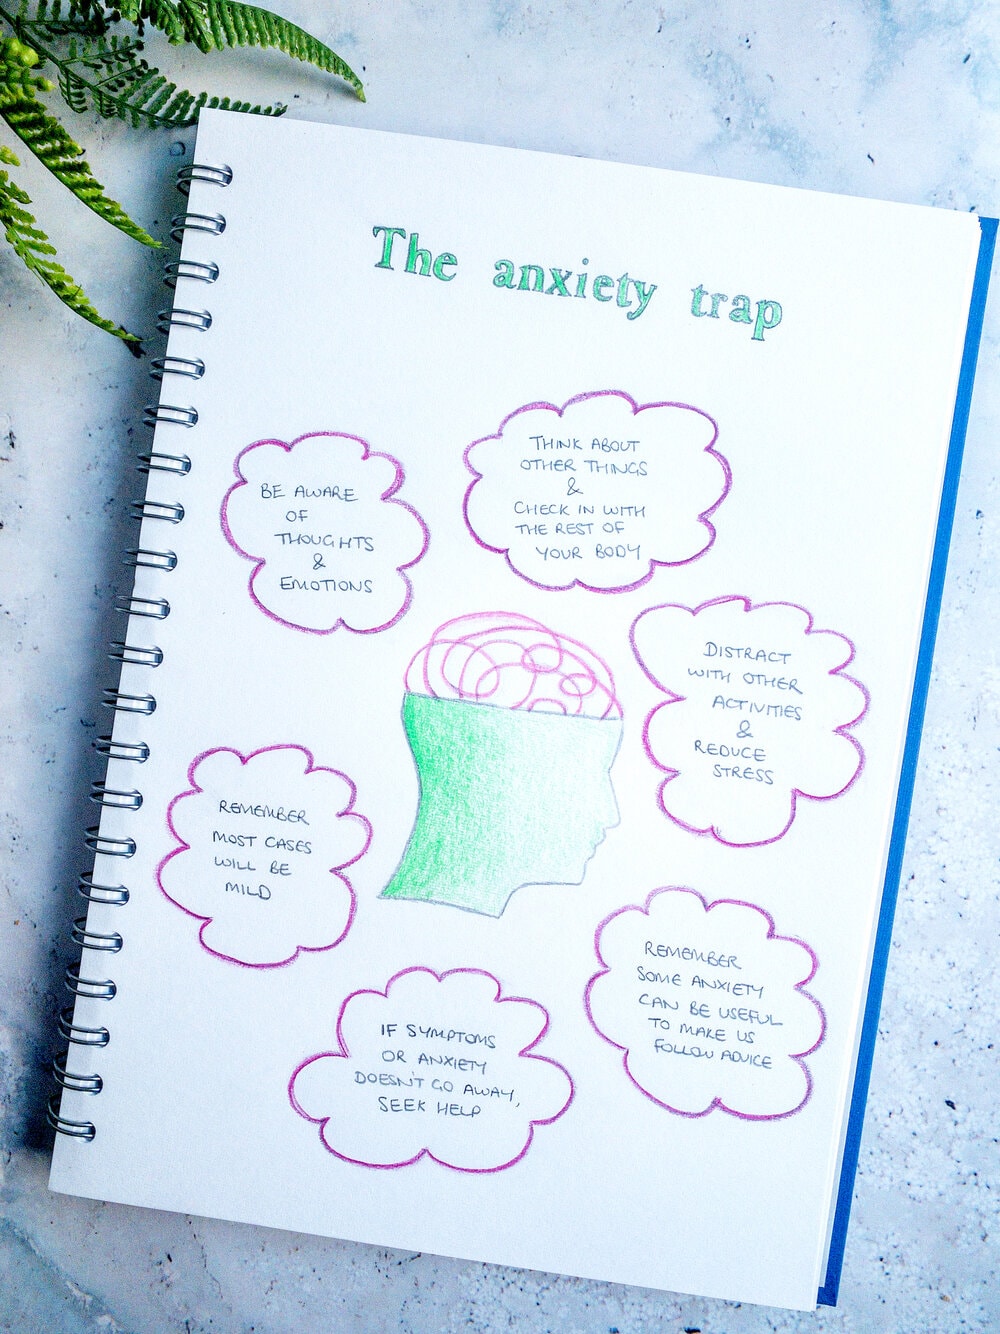 The anxiety trap
BE AWARE
OF
THOUGHTS
&
EMOTIONS
THINK ABOUT
OTHER THINGS
&
CHECK IN WITH
THE REST OF
YOUR BODY
DISTRACT
WITH OTHER
ACTIVITIES
&
REDUCE
STRESS
REMEMBER
MOST CASES
WILL BE
MILD
REMEMBER
SOME ANXIETY
CAN BE USEFUL
TO MAKE US
FOLLOW ADVICE
IF SYMPTOMS
OR ANXIETY
DOESN'T GO AWAY,
SEEK HELP